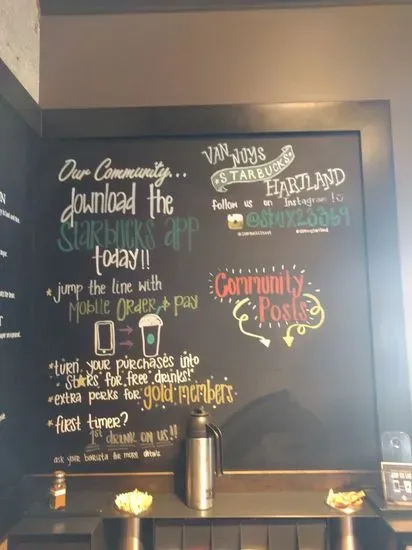 Our Community...
download the
STARBUCKS app
today!!
*jump the line with
Mobile Order & pay
*turn your purchases into
stars for free drinks!*
*extra perks for gold members
*first timer?
1st DRINK ON US!!
ask your barista for more details
VAN NUYS
STARBUCKS
HARTLAND
follow us on Instagram!
Community
Posts